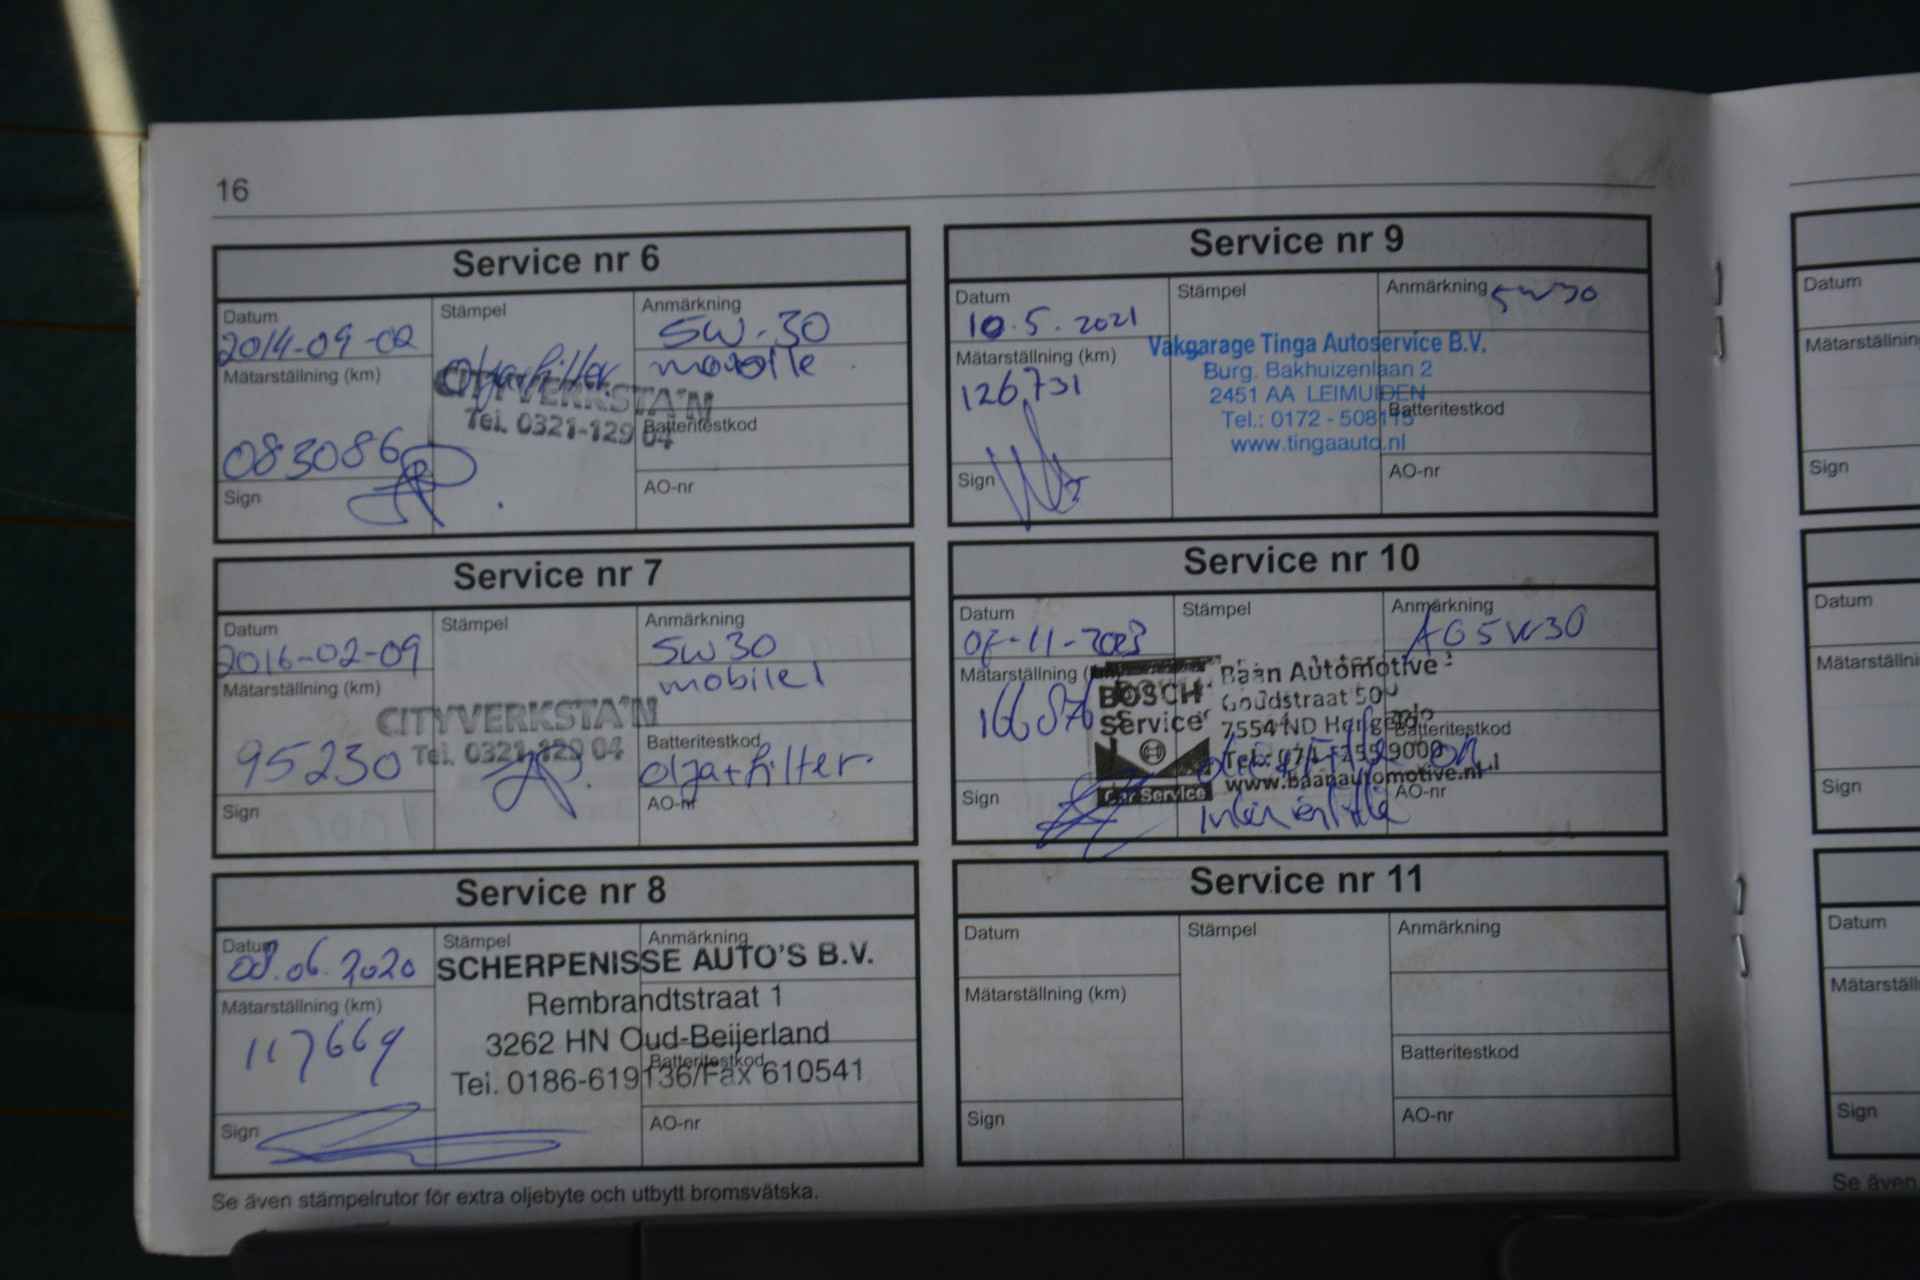 16
Service nr 6
Datum
2014-09-02
Stämpel
Anmärkning
5W-30
mobile
Mätarställning (km)
083086
olja+filter
CITYVERKSTA'N
Tel. 0321-129 04
Batteritestkod
Sign
AO-nr
Service nr 7
Datum
2016-02-09
Stämpel
Anmärkning
5W30
mobile1
Mätarställning (km)
95230
CITYVERKSTA'N
Tel. 0321-129 04
Batteritestkod
olja+filter
Sign
AO-nr
Service nr 8
Datum
08.06.2020
Stämpel
Anmärkning
SCHERPENISSE AUTO'S B.V.
Rembrandtstraat 1
3262 HN Oud-Beijerland
Tel. 0186-619136/Fax 610541
Mätarställning (km)
117669
Batteritestkod
Sign
AO-nr
Se även stämpelrutor för extra oljebyte och utbytt bromsvätska.
Service nr 9
Datum
10.5.2021
Stämpel
Anmärkning
5W30
Mätarställning (km)
126731
Vakgarage Tinga Autoservice B.V.
Burg. Bakhuizenlaan 2
2451 AA LEIMUIDEN
Tel.: 0172 - 508115
www.tingaauto.nl
Batteritestkod
Sign
AO-nr
Service nr 10
Datum
Stämpel
Anmärkning
5W30
Mätarställning
BOSCH
Service
Car Service
Baan Automotive
Goudstraat 50
7554 ND Hengelo
www.baanautomotive.nl
Batteritestkod
Sign
AO-nr
Service nr 11
Datum
Stämpel
Anmärkning
Mätarställning (km)
Batteritestkod
Sign
AO-nr
Datum
Mätarställnin
Sign
Datum
Mätarställni
Sign
Datum
Mätarställ
Sign
Se även